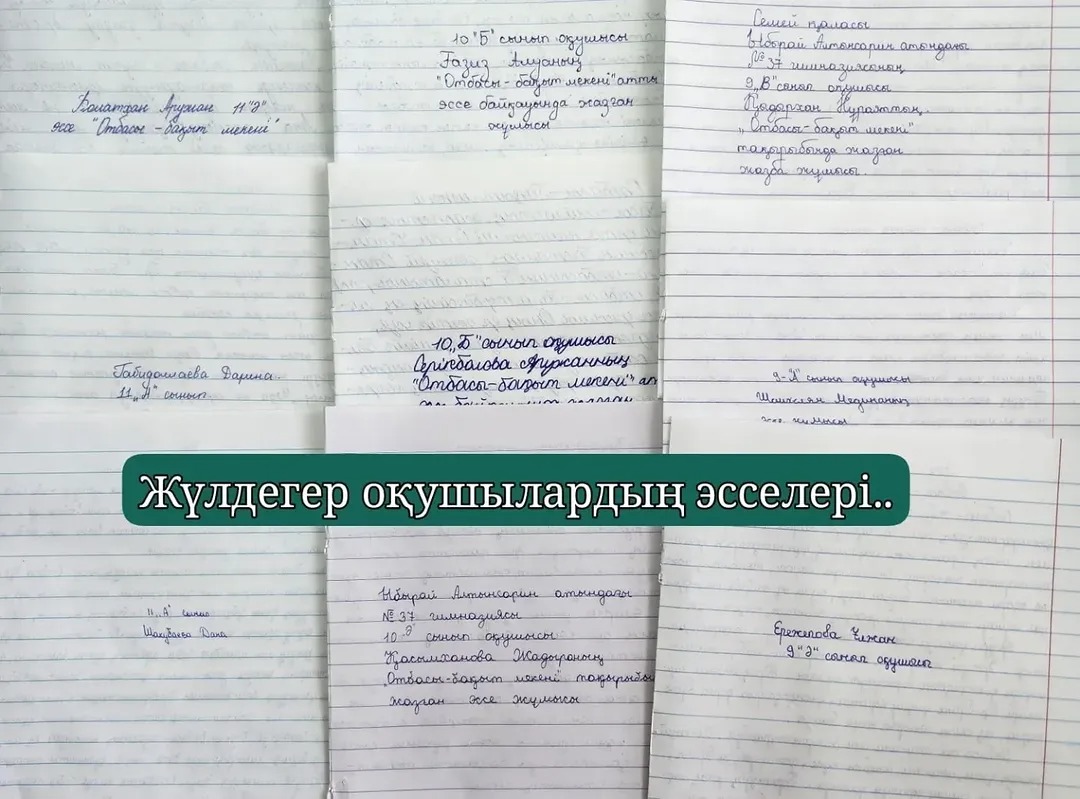 Болатхан Аружан 11"Э"
эссе "Отбасы - бақыт мекені"
10 "Б" сынып оқушысы
Ғазиз Алуаның
"Отбасы - бақыт мекені" атты
эссе байқауында жазған
жұмысы
Семей қаласы
Ыбырай Алтынсарин атындағы
№37 гимназияның
9 „В" сынып оқушысы
Қыдырхан Нұралттың,
„Отбасы-бақыт мекені"
тақырыбында жазған
жазба жұмысы.
Габидоллаева Дарина.
11 „А" сынып
10 „Б" сынып оқушысы
Серікболова Аружанның
"Отбасы-бақыт мекені" ат
9-"А" сынып оқушысы
Медананың
жұмысы
Жүлдегер оқушылардың эсселері..
11 „А" сынып
Шакубаева Дана
Ыбырай Алтынсарин атындағы
№37 гимназиясы
10-Э сынып оқушысы
Қасымханова Жадыраның
„Отбасы-бақыт мекені" тақырыбы
жазған эссе жұмысы
Ережепова Ұлжан
9 "Э" сынып оқушысы